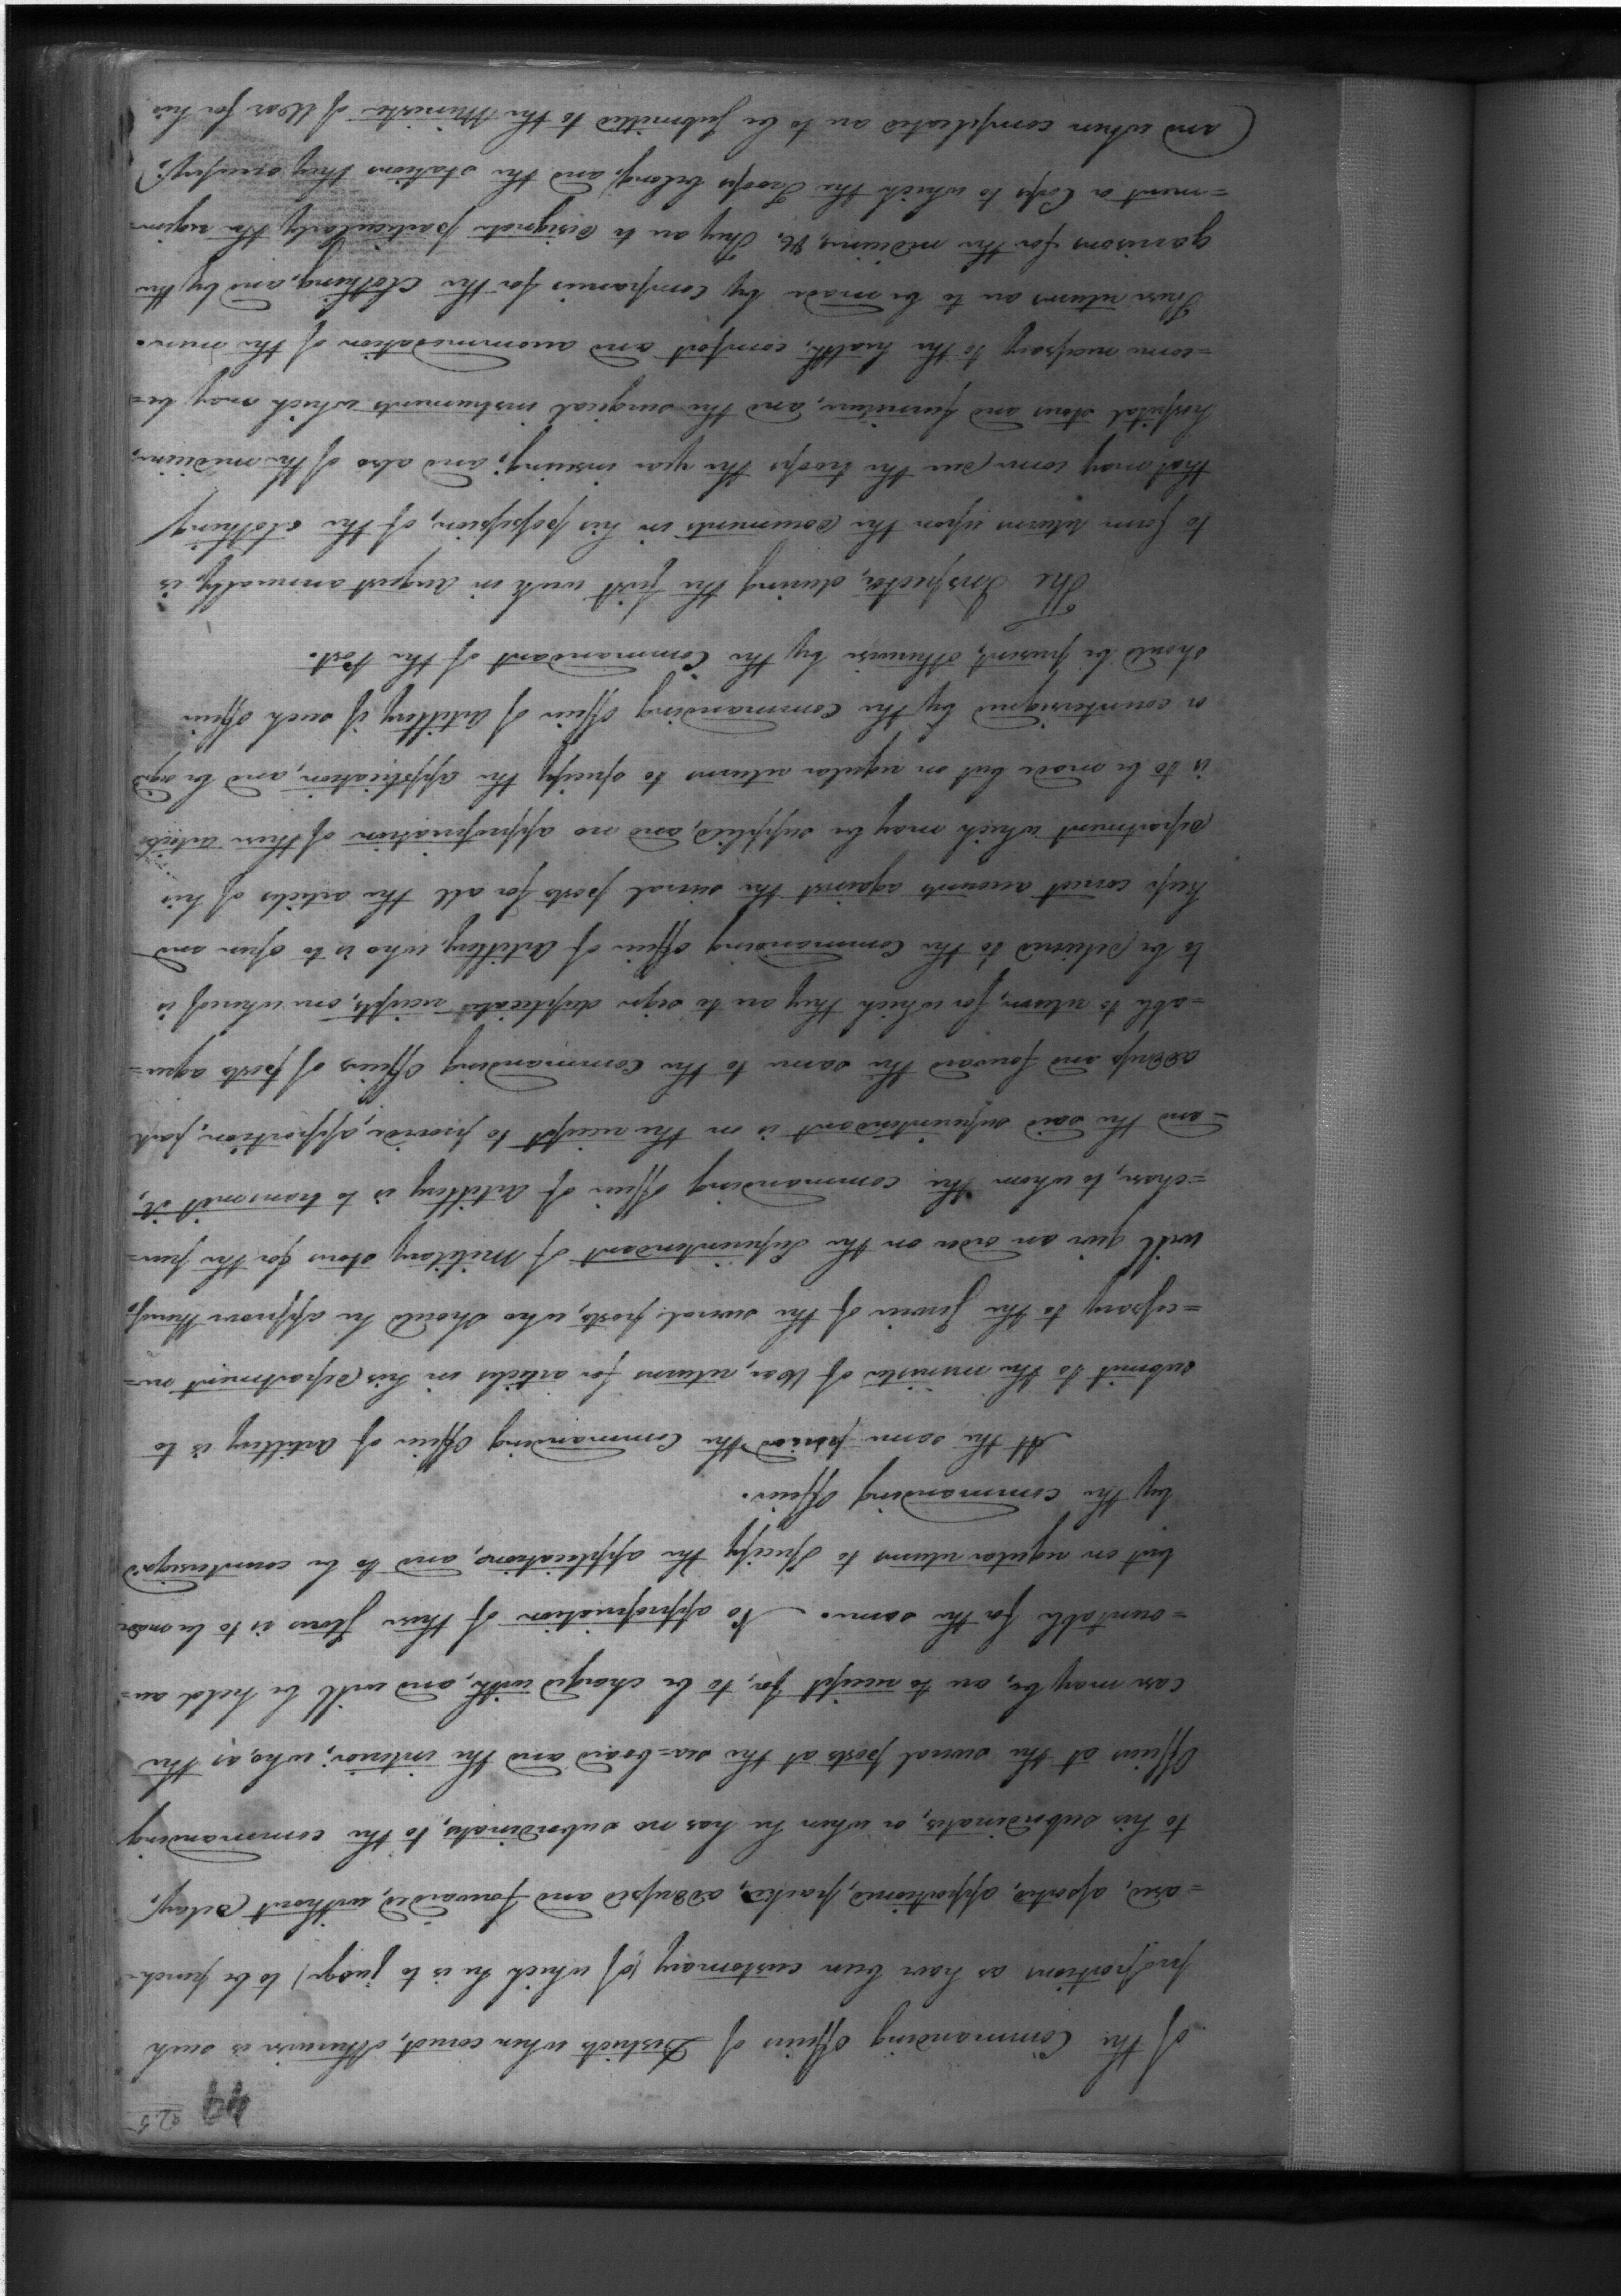 44 25
of the Commanding officers of Districts when correct, otherwise as such
proportions as have been customary (of which he is to judge) to be purch-
=ased, asported, apportioned, packed, addressed and forwarded, without delay,
to his subordinates, or when he has no subordinates, to the commanding
Officers at the several posts at the sea=board and the interior; who, as the
case may be, are to receipt for, to be charged with, and will be held ac=
=countable for the same. No appropriation of these stores is to be made
but on regular returns to specify the applications, and to be countersign'd
by the commanding officer.
At the same period the Commanding Officer of Artillery is to
submit to the minister of War, returns for articles in his department ne=
=cessary to the service of the several posts, who should he approve thereof,
will give an order on the Superintendant of Military stores for the pur=
=chase, to whom the commanding officer of Artillery is to transmit it,
=and the said superintendant is on the receipt to provide, apportion, pack
address and forward the same to the Commanding Officers of posts agree=
=able to return, for which they are to sign duplicate receipts, one whereof is
to be returned to the Commanding officer of Artillery, who is to open and
keep correct accounts against the several posts for all the articles of his
department which may be supplied, and no appropriation of these articles
is to be made but on regular returns to specify the application, and be sign'd
or countersigned by the Commanding officer of Artillery if such officer
should be present, otherwise by the Commandant of the Post.
The Inspector, during the first week in August annually, is
to form returns upon the documents in his possession, of the clothing
that may come due the troops the year insuing; and also of the medicine,
hospital stores and furniture, and the surgical instruments which may be=
=come necessary to the health, comfort and accommodation of the men.
These returns are to be made by companies for the Clothing, and by the
garrisons for the medicines, &c. They are to designate particularly the regi=
=ment or Corps to which the Troops belong, and the stations they occupy;
and when completed are to be submitted to the Minister of War for his